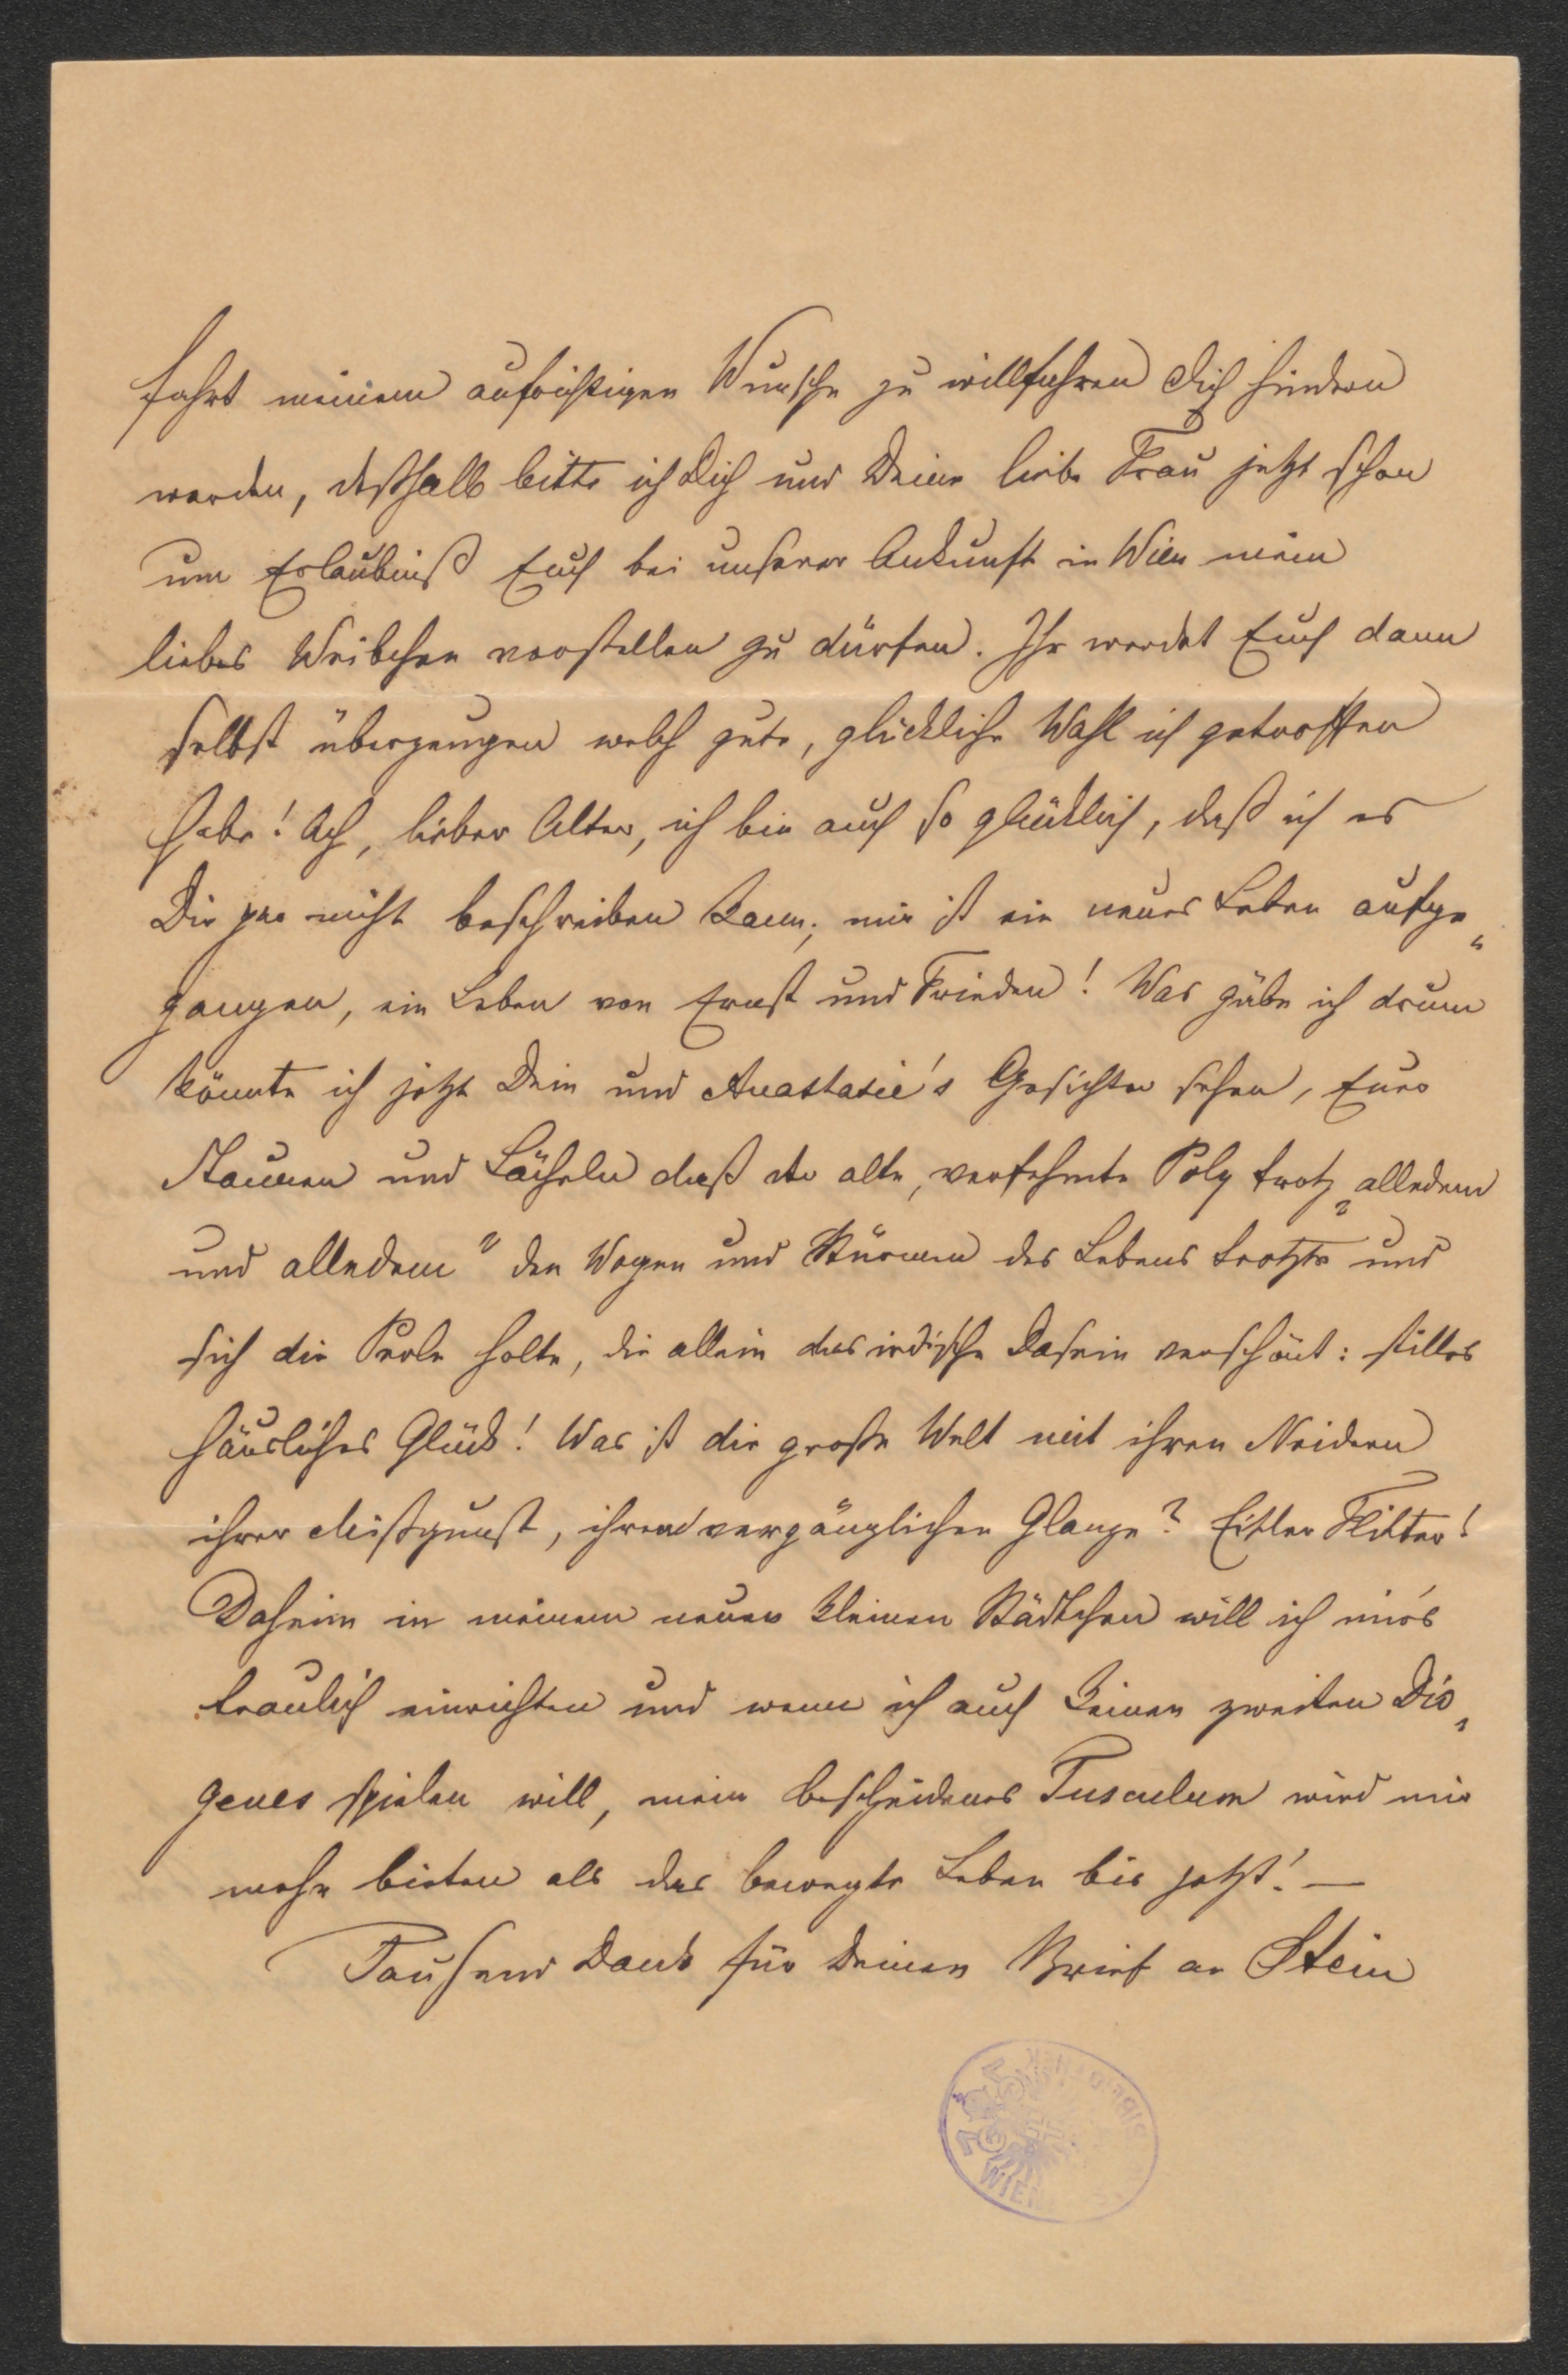 fahrt meinem aufrichtigen Wunsche zu willfahren Dich hindern
werden, deßhalb bitte ich Dich und Deine liebe Frau jetzt schon
um Erlaubniß Euch bei unserer Ankunft in Wien mein
liebes Weibchen vorstellen zu dürfen. Ihr werdet Euch dann
selbst überzeugen welch gute, glückliche Wahl ich getroffen
habe! Ach, lieber Alter, ich bin auch so glücklich, daß ich es
Dir gar nicht beschreiben kann; mir ist ein neues Leben aufge„
gangen, ein Leben von Ernst und Frieden! Was gäbe ich drum
könnte ich jetzt Dein und Anastasie's Gesichter sehen, Euer
Staunen und Lächeln daß der alte, verfehmte Poly trotz „alledem
und alledem" den Wogen und Stürmen des Lebens trotzte und
sich die Perle holte, die allein das irdische Dasein verschönt: stilles
häusliches Glück! Was ist die große Welt mit ihren Neidern
ihrer Mißgunst, ihrem vergänglichen Glanze? Eitler Flitter!
Daheim in meinem neuen kleinen Städtchen will ich mir's
traulich einrichten und wenn ich auch keinen zweiten Dio„
genes spielen will, mein bescheidenes Tusculum wird mir
mehr bieten als das bewegte Leben bis jetzt! —
Tausend Dank für Deinen Brief an Stein
WIEN